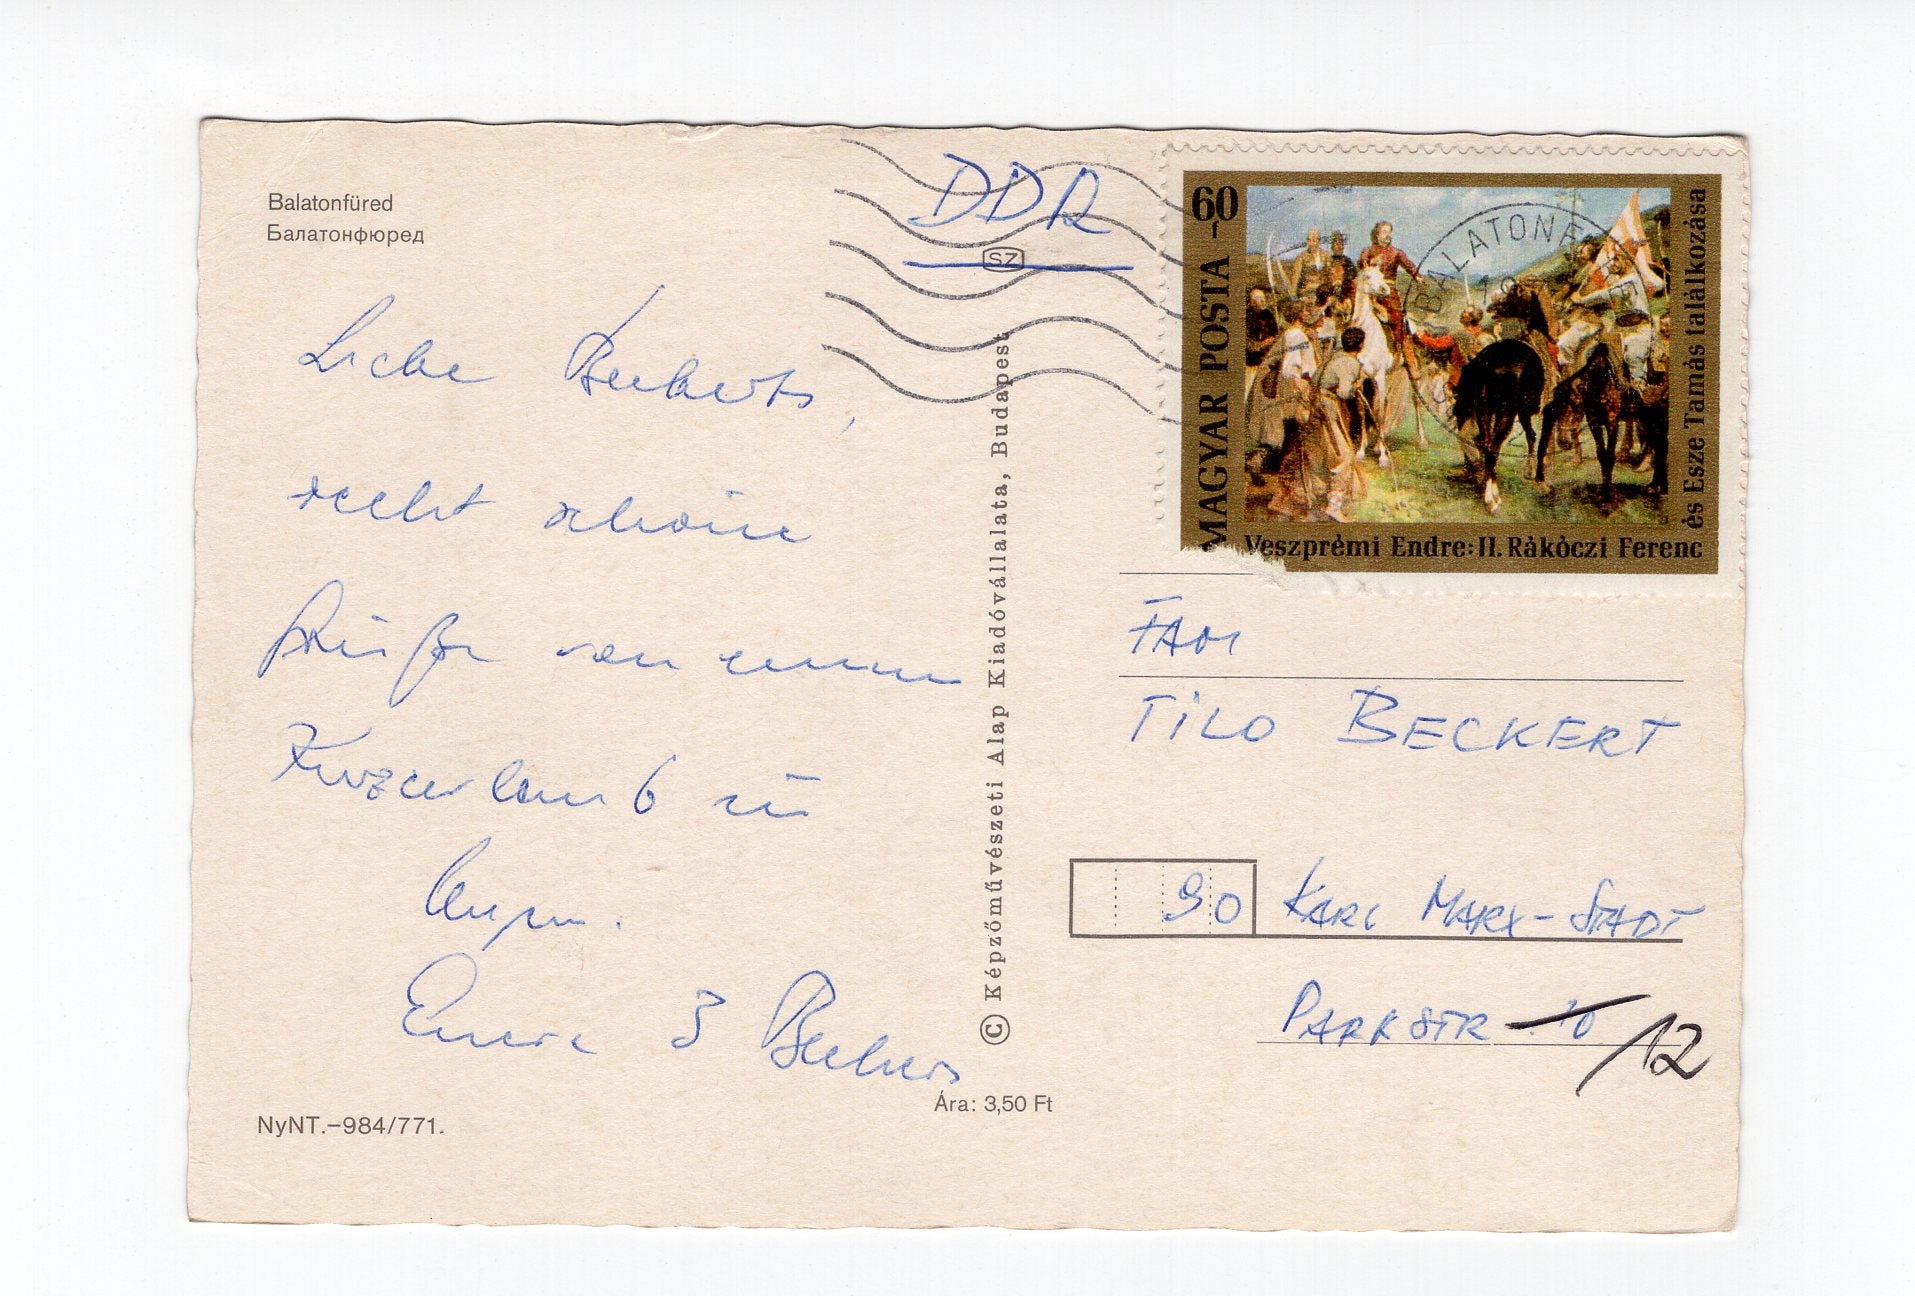 Balatonfüred
Балатонфюред
DDR
SZ
Liebe Beckerts,
recht schöne
Grüße von einem
Kurzurlaub in
Ungarn.
Eure 3 Beckers
NyNT.–984/771.
Ára: 3,50 Ft
© Képzőművészeti Alap Kiadóvállalata, Budapest
60
MAGYAR POSTA
Veszprémi Endre: II. Rákóczi Ferenc
és Esze Tamás találkozása
BALATONF
FAM
TILO BECKERT
90 KARL MARX-STADT
PARKSTR 10 /12